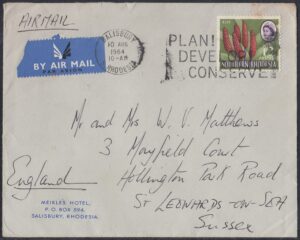 AIRMAIL
SALISBURY
10 AUG
1964
10-AM
RHODESIA
PLAN
DEVE
CONSERVE
SOUTHERN RHODESIA
BY AIR MAIL
PAR AVION
Mr and Mrs W. V. Matthews
3 Mayfield Court
Hollington Park Road
St LEONARDS-ON-SEA
Sussex
England
MEIKLES HOTEL,
P.O. BOX 594,
SALISBURY, RHODESIA.